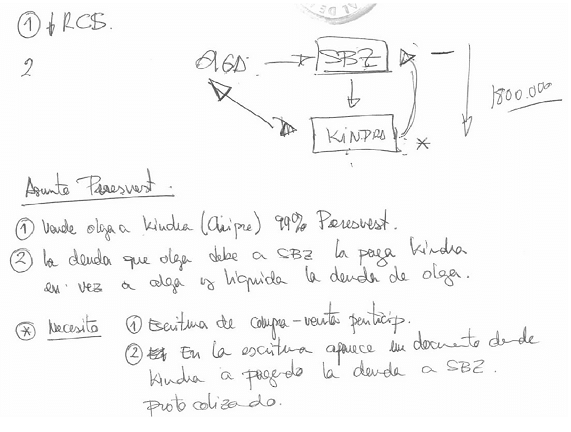 ① ↓ RCS.
2
OLGA → SBZ
1800.000
KINDRA *
Asunto Peresvest.
① Vende olga a Kindra (Chipre) 99% Peresvest.
② la deuda que olga debe a SBZ la paga Kindra
en vez a olga y liquida la deuda de olga.
* Necesito ① Escritura de compra-venta particip.
② En la escritura aparece un documento donde
Kindra a pagado la deuda a SBZ.
Protocolizado.